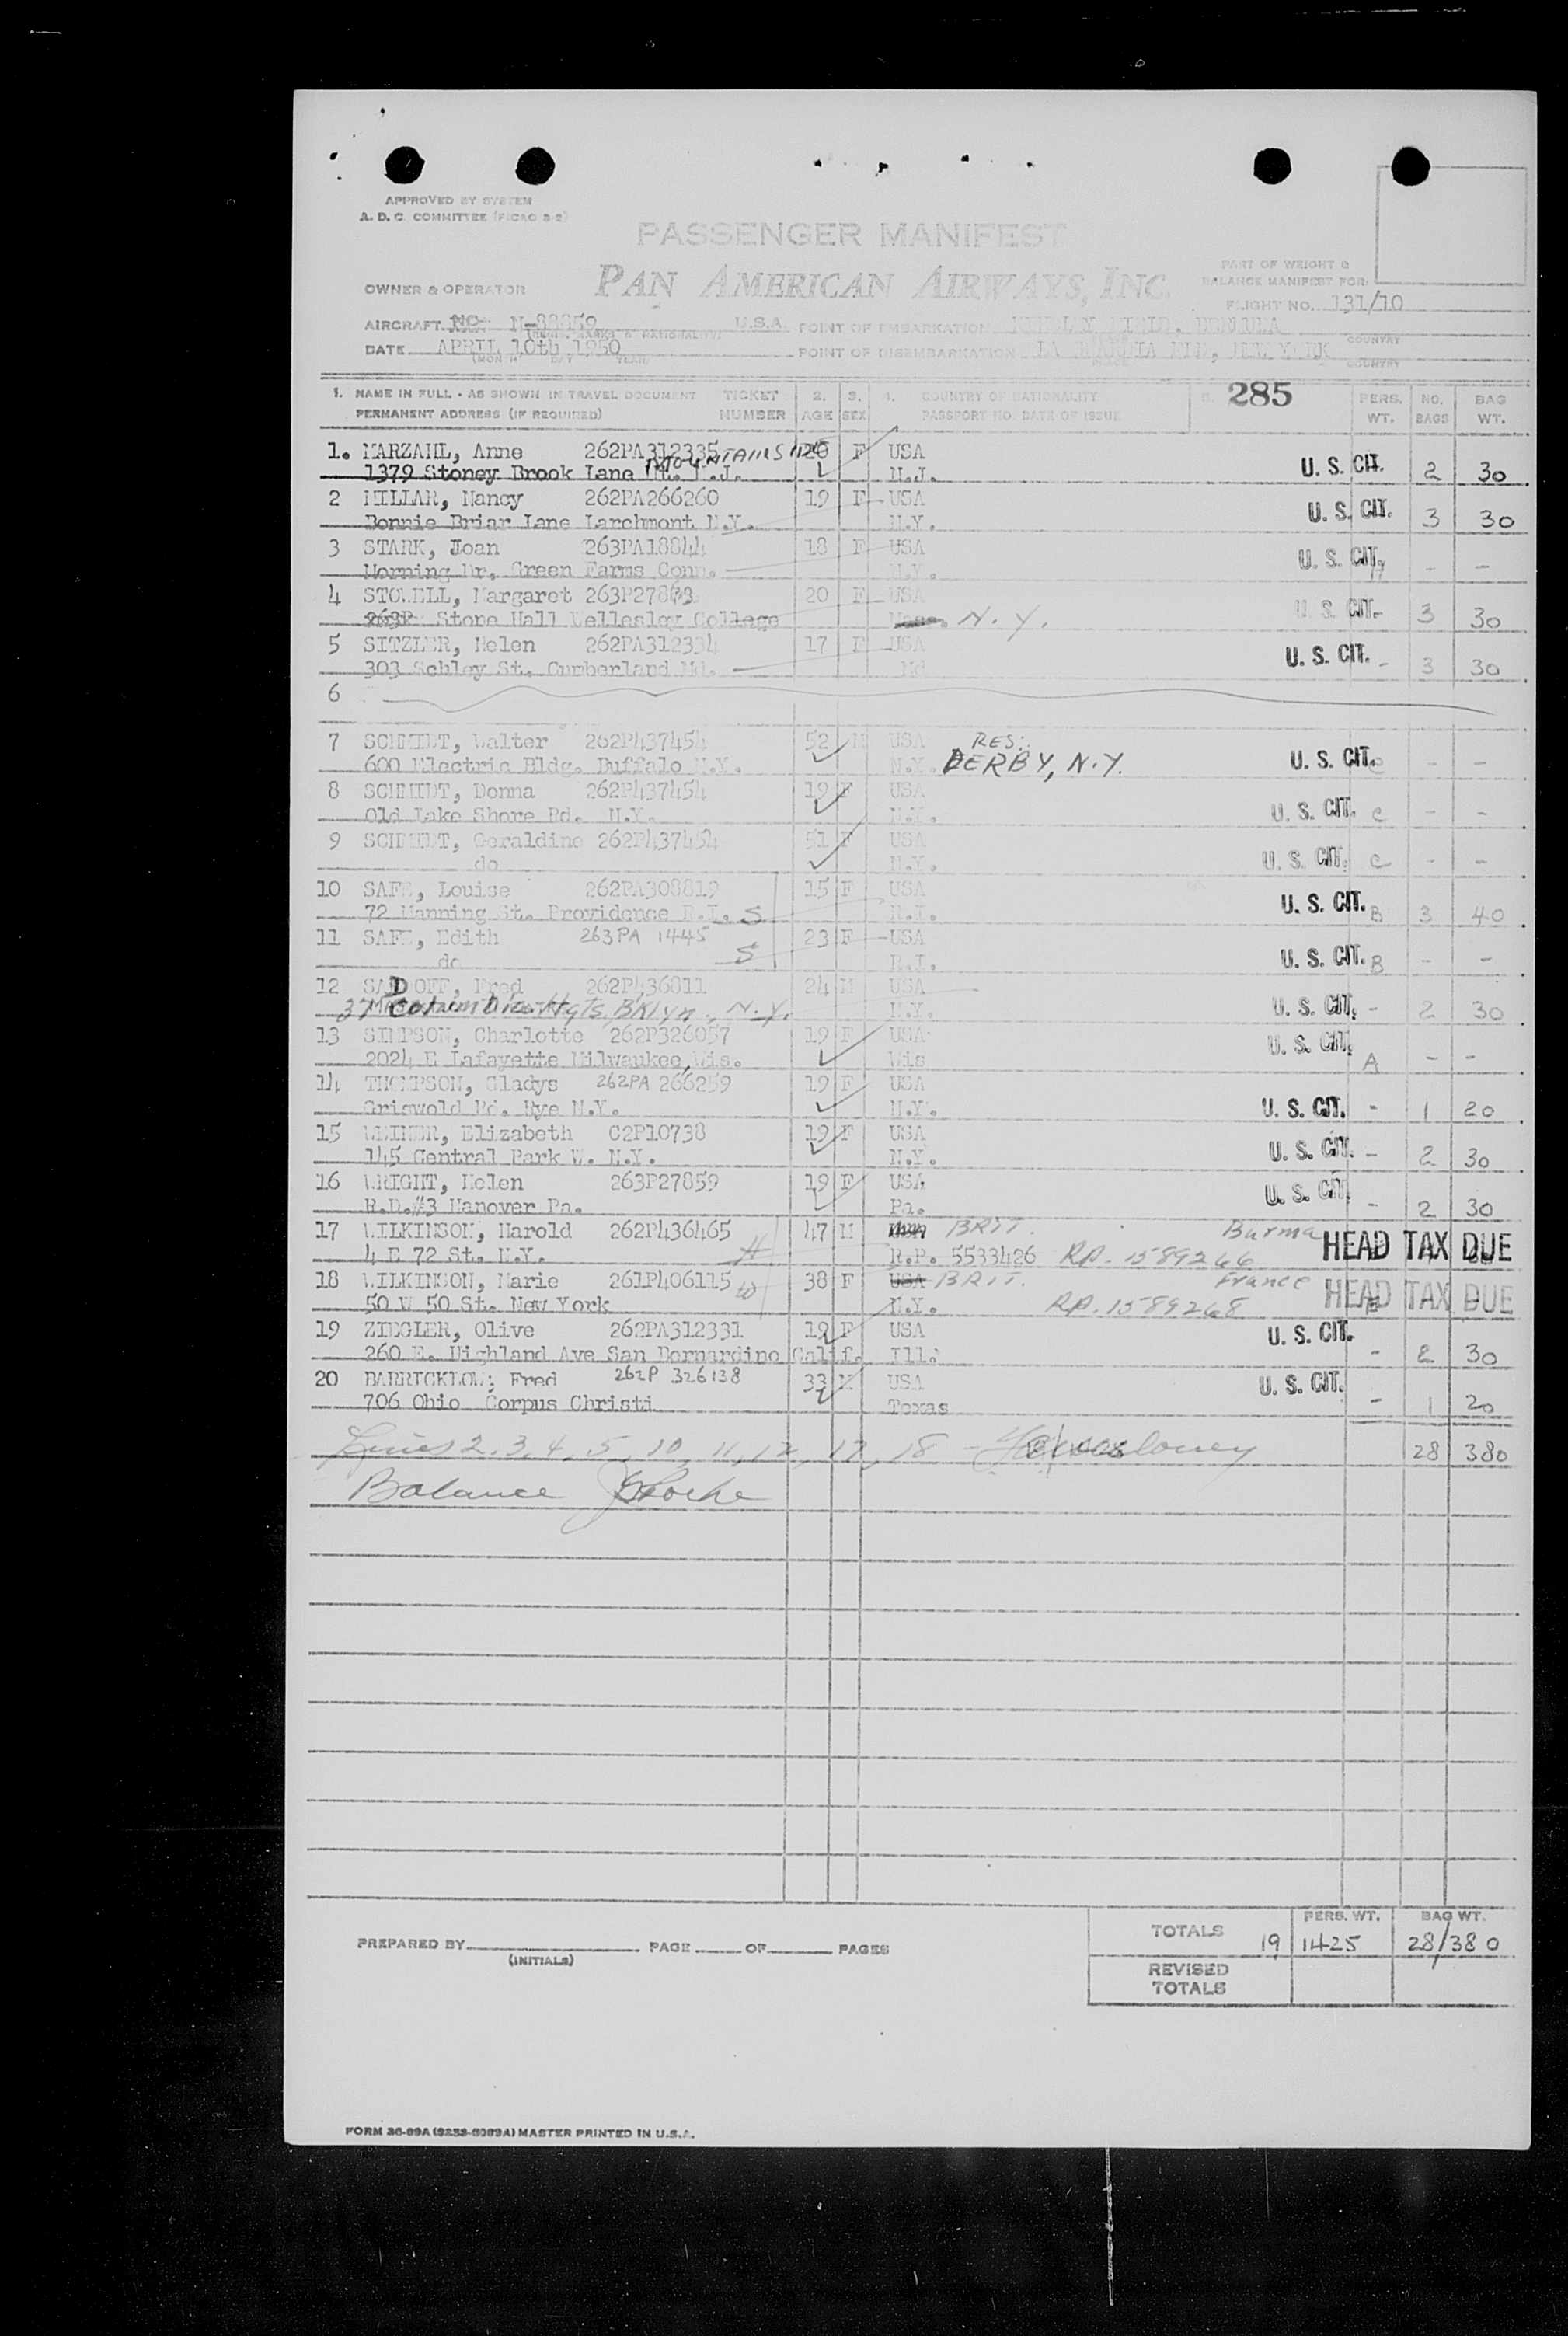 APPROVED BY SYSTEM
A. D. C. COMMITTEE (FICAO 3-2)
PASSENGER MANIFEST
PAN AMERICAN AIRWAYS, INC.
PART OF WEIGHT &
BALANCE MANIFEST FOR
OWNER & OPERATOR
FLIGHT NO. 131/10
AIRCRAFT NC N-88859 U.S.A. POINT OF EMBARKATION KINDLEY FIELD, BERMUDA
COUNTRY
DATE APRIL 10th 1950 POINT OF DISEMBARKATION LA GUARDIA FLD, NEW YORK
(MONTH) DAY YEAR) COUNTRY
1. NAME IN FULL - AS SHOWN IN TRAVEL DOCUMENT TICKET 2. 3. 4. COUNTRY OF NATIONALITY 5. 285 PERS. NO. BAG
PERMANENT ADDRESS (IF REQUIRED) NUMBER AGE SEX PASSPORT NO. DATE OF ISSUE WT. BAGS WT.
1. MARZAHL, Anne 262PA312335 20 F USA
1379 Stoney Brook Lane MOUNTAINSIDE N.J. N.J. U. S. CIT. 2 30
2 MILLAR, Nancy 262PA266260 19 F USA
Bonnie Briar Lane Larchmont N.Y. N.Y. U. S. CIT. 3 30
3 STARK, Joan 263PA18844 18 F USA
Morning Dr. Green Farms Conn. N.Y. U. S. CIT. - -
4 STOWELL, Margaret 263P27873 20 F USA
263P Stone Hall Wellesley College N.Y. U. S. CIT. - 3 30
5 SITZLER, Helen 262PA312334 17 F USA
303 Schley St. Cumberland Md. Md U. S. CIT. - 3 30
6
7 SCHMIDT, Walter 262P437454 52 M USA RES:
600 Electric Bldg. Buffalo N.Y. N.Y. DERBY, N.Y. U. S. CIT. C - -
8 SCHMIDT, Donna 262P437454 19 F USA
Old Lake Shore Rd. N.Y. N.Y. U. S. CIT. C - -
9 SCHMIDT, Geraldine 262P437454 51 F USA
do N.Y. U. S. CIT. C - -
10 SAFE, Louise 262PA308819 15 F USA
72 Manning St. Providence R.I. S R.I. U. S. CIT. B 3 40
11 SAFE, Edith 263PA 1445 23 F USA
do S R.I. U. S. CIT. B - -
12 SADOFF, Fred 262P436811 24 M USA
37 Columbia Hgts. B'klyn., N.Y. N.Y. U. S. CIT. - 2 30
13 SIMPSON, Charlotte 262P326057 19 F USA
2024 E Lafayette Milwaukee, Wis. Wis U. S. CIT. A - -
14 THOMPSON, Gladys 262PA 266259 19 F USA
Griswold Rd. Rye N.Y. N.Y. U. S. CIT. - 1 20
15 WEINER, Elizabeth C2P10738 19 F USA
145 Central Park W. N.Y. N.Y. U. S. CIT. - 2 30
16 WRIGHT, Helen 263P27859 19 F USA
R.D.#3 Hanover Pa. Pa. U. S. CIT. - 2 30
17 WILKINSON, Harold 262P436465 47 M BRIT. Burma HEAD TAX DUE
4 E 72 St. N.Y. H R.P. 5533426 RP. 1589266
18 WILKINSON, Marie 261P406115 W 38 F USA BRIT. France HEAD TAX DUE
50 W 50 St. New York N.Y. RP. 1589268
19 ZIEGLER, Olive 262PA312331 19 F USA U. S. CIT.
260 E. Highland Ave San Bernardino Calif. Ill. - 2 30
20 BARRICKLOW, Fred 262P 326138 33 M USA U. S. CIT.
706 Ohio Corpus Christi Texas - 1 20
Lines 2, 3, 4, 5, 10, 11, 12, 17, 18 - 28 380
Balance
TOTALS 19 PERS. WT. 1425 BAG WT. 28/380
PREPARED BY (INITIALS) PAGE OF PAGES
REVISED
TOTALS
FORM 36-89A (9253-6089A) MASTER PRINTED IN U.S.A.